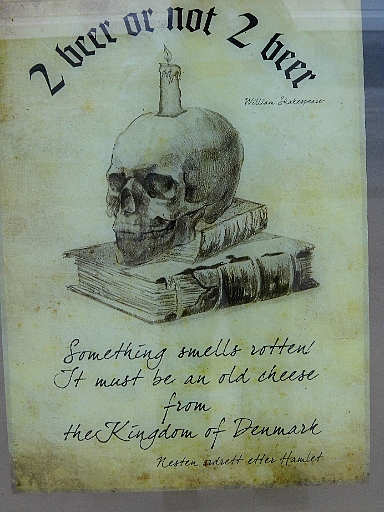 2 beer or not 2 beer
William Skakespeare
Something smells rotten!
It must be an old cheese
from
the Kingdom of Denmark
Nesten ordrett etter Hamlet